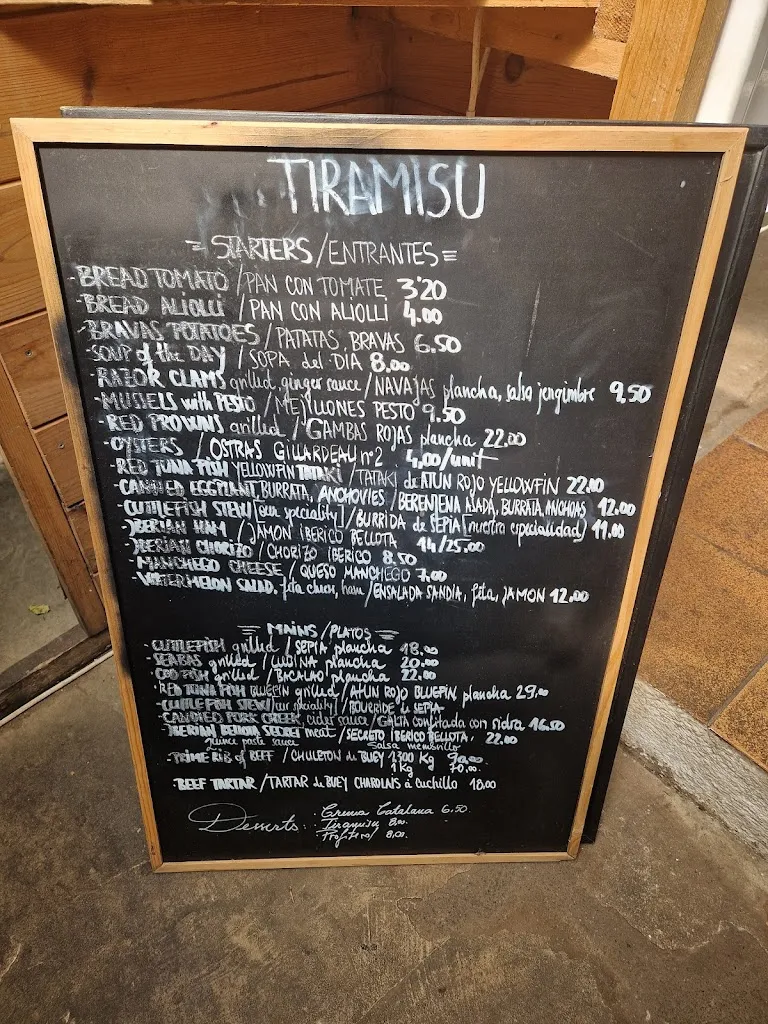 TIRAMISU
= STARTERS / ENTRANTES =
- BREAD TOMATO / PAN CON TOMATE 3'20
- BREAD ALIOLLI / PAN CON ALIOLLI 4.00
- BRAVAS POTATOES / PATATAS BRAVAS 6.50
- SOUP of the DAY / SOPA del DIA 8.00
- RAZOR CLAMS grilled, ginger sauce / NAVAJAS plancha, salsa jengimbre 9,50
- MUSSELS with PESTO / MEJILLONES PESTO 9.50
- RED PROWNS grilled / GAMBAS ROJAS plancha 22.00
- OYSTERS / OSTRAS GILLARDEAU nº2 4,00/unit
- RED TUNA FISH YELLOWFIN TATAKI / TATAKI de ATUN ROJO YELLOWFIN 22.00
- CANDIED EGGPLANT, BURRATA, ANCHOVIES / BERENJENA ASADA, BURRATA, ANCHOAS 12.00
- CUTTLEFISH STEW [our speciality] / BURRIDA de SEPIA [nuestra especialidad] 11.00
- IBERIAN HAM / JAMON IBERICO BELLOTA 14/25.00
- IBERIAN CHORIZO / CHORIZO IBERICO 8.50
- MANCHEGO CHEESE / QUESO MANCHEGO 7.00
- WATERMELON SALAD, feta cheese, ham / ENSALADA SANDIA, feta, JAMON 12.00
= MAINS / PLATOS =
- CUTTLEFISH grilled / SEPIA plancha 18.00
- SEABAS grilled / LUBINA plancha 20.00
- COD FISH grilled / BACALAO plancha 22.00
- RED TUNA FISH BLUEFIN grilled / ATUN ROJO BLUEFIN plancha 29.00
- CUTTLEFISH STEW [our speciality] / BOURRIDE de SEPIA-
- CANDIED PORK CHEEK, cider sauce / GALTA confitada con sidra 16.50
- IBERIAN BELLOTA SECRET meat / SECRETO IBERICO BELLOTA, 22.00
quince paste sauce salsa membrillo
- PRIME RIB of BEEF / CHULETON de BUEY 1300 Kg 90.00
1 Kg 70.00
- BEEF TARTAR / TARTAR de BUEY CHAROLAIS a cuchillo 18.00
Desserts: Crema Catalana 6,50.
Tiramisu 8,00.
8,00.